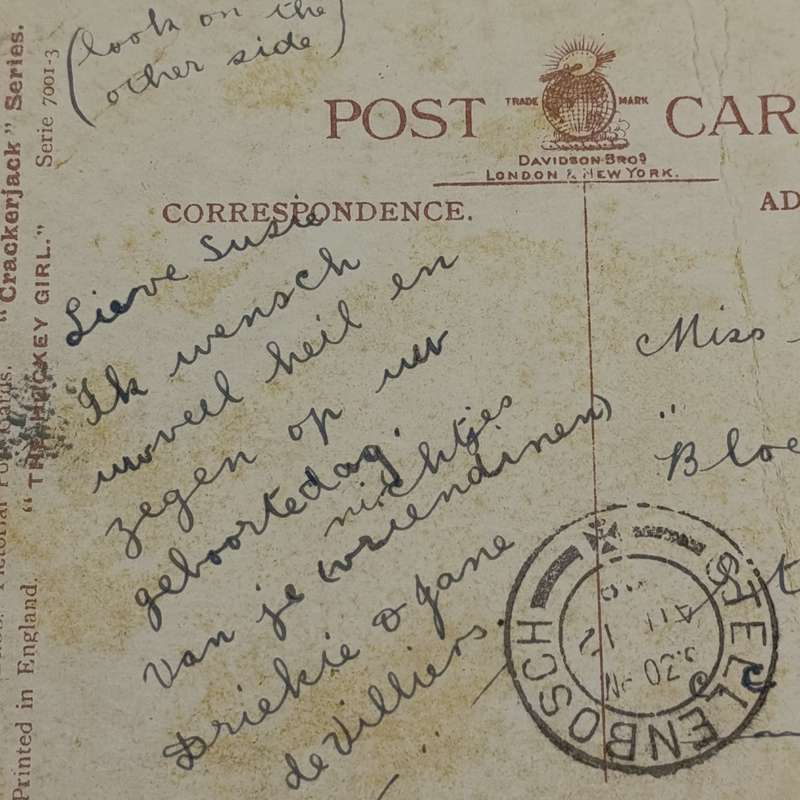 (look on the
other side)
POST CAR
TRADE MARK
DAVIDSON BROS
LONDON & NEW YORK.
CORRESPONDENCE.
AD
Lieve Susie
Ik wensch
uw veel heil en
zegen op uw
geboortedag.
nichtjes
Van je (vriendinen)
Driekie & Jane
de Villiers.
Miss
"
Bloe
STELLENBOSCH
3.30 PM
12
"Crackerjack" Series.
"THE HOCKEY GIRL."
Serie 7001-3
Printed in England.